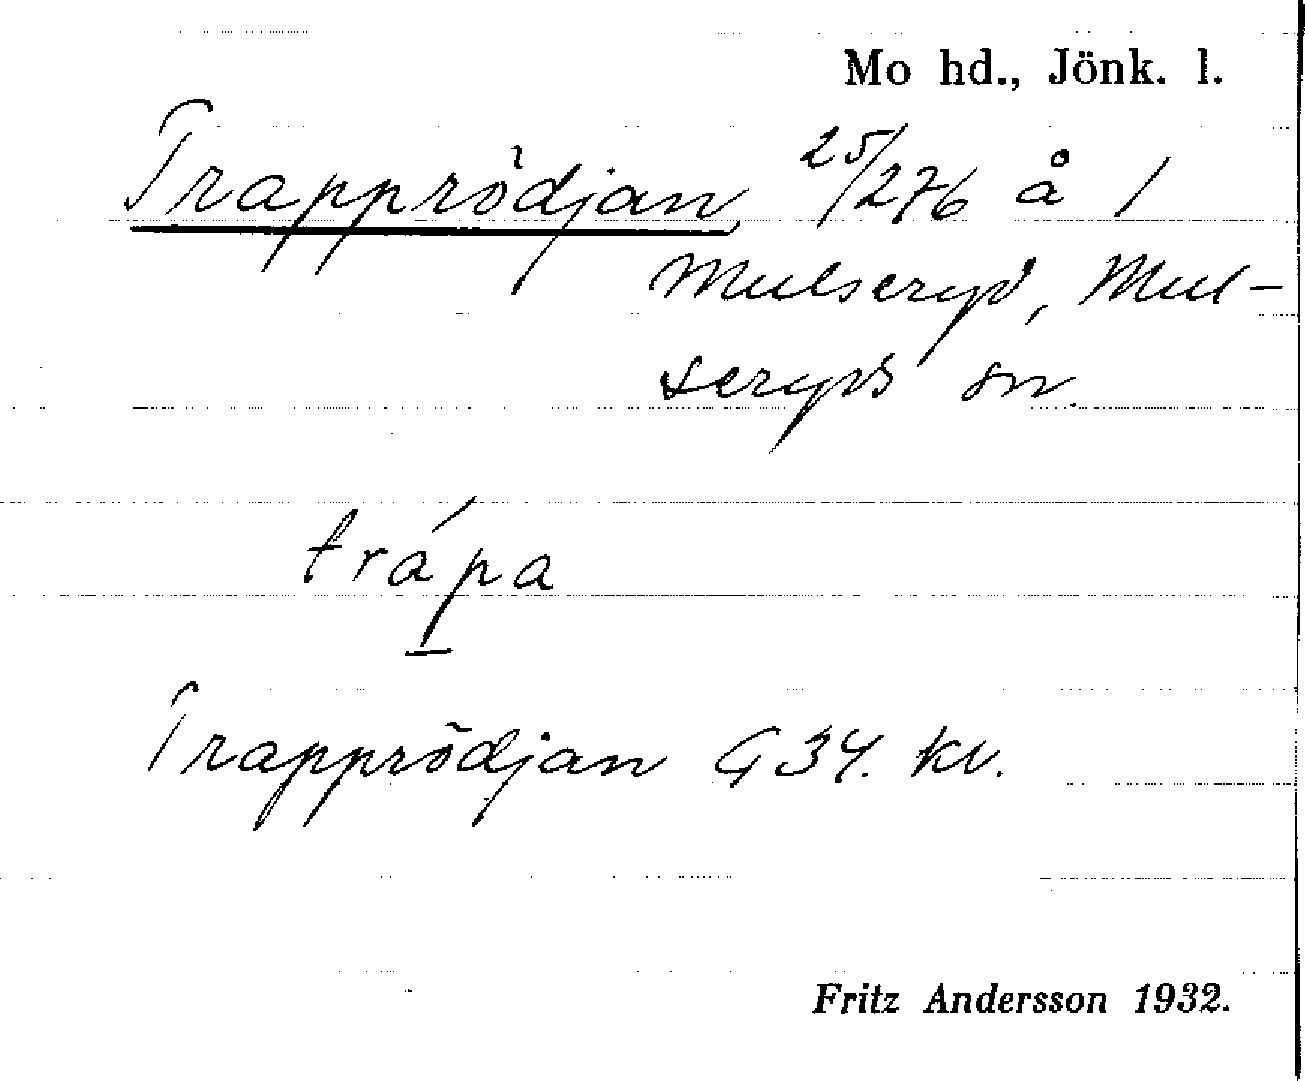 Mo hd., Jönk. l.
Trapprödjan 25/276 å 1
Mulseryd, Mul-
seryds sn.
trápa
Trapprödjan G 34. kv.
Fritz Andersson 1932.